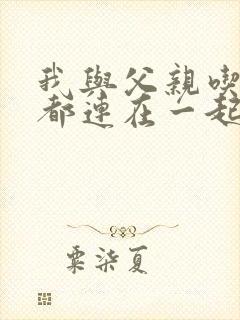 我與父親喫
都連在一起
粟柒夏